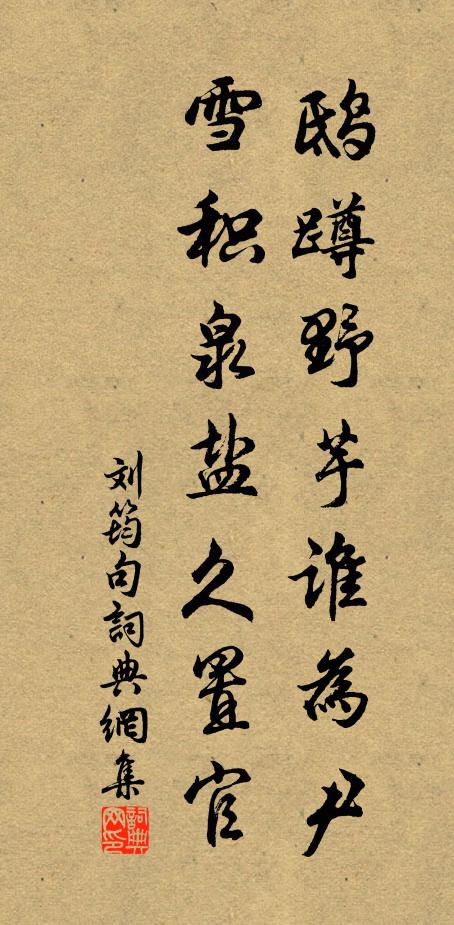 鸱蹲野芋谁為尹
雪积泉盐久置官
刘筠句詞典網集
詞典網印